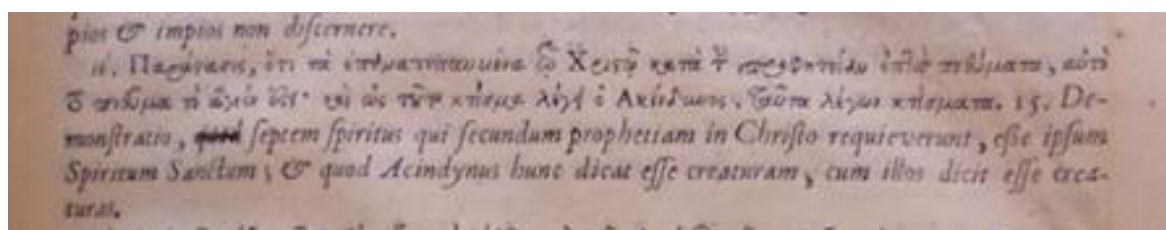 pios & impios non discernere.
ιέ. Παράστασις, ὅτι τὰ τῷ Χριστῷ κατὰ τ προφητείαν ἑπτὰ πνεύματα, αὐτὸ
τὸ πνεῦμα τὸ ἅγιόν ὅτι καὶ ὡς κτίσμα λέγει ὁ Ἀκίνδυνος, ταῦτα λέγων κτίσματα. 15. De-
monstratio, quod septem spiritus qui secundum prophetiam in Christo requieverunt, esse ipsum
Spiritum Sanctum; & quod Acindynus hunc dicat esse creaturam, cum illos dicit esse crea-
turas.